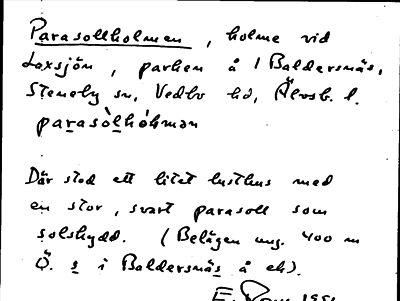 Parasollholmen, holme vid
Laxsjön, parken å / Baldersnäs,
Steneby sn, Vedbo hd, Älvsb. l.
parasòlhòlman
Där stod ett litet lusthus med
en stor, svart parasoll som
solskydd. (Belägen ung. 400 m
Ö. s i Baldersnäs å ek).